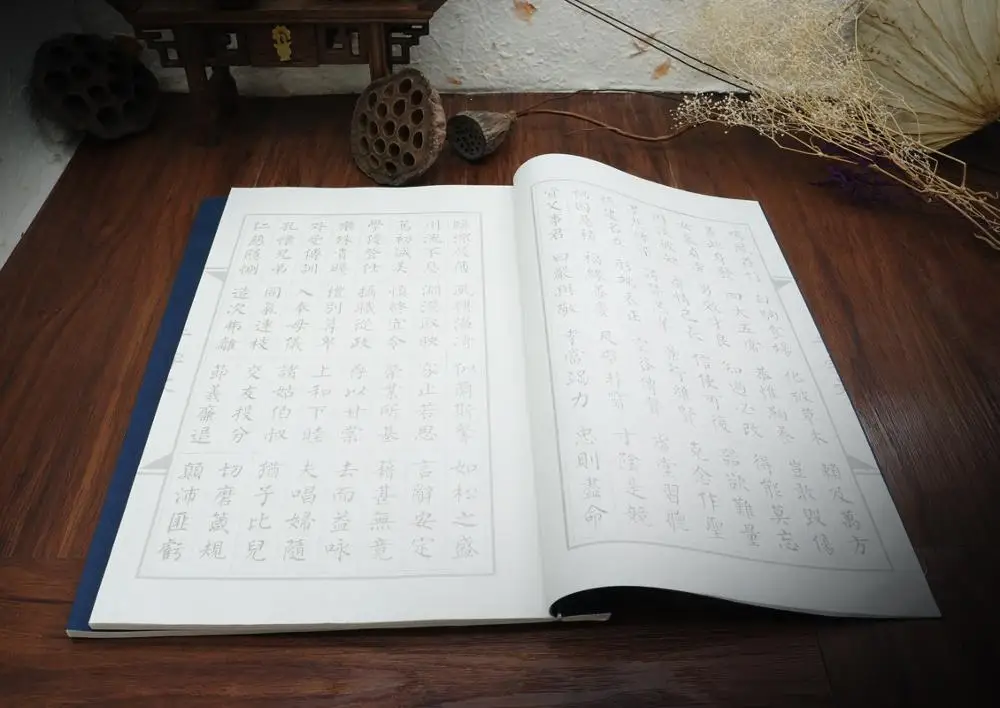 鳴鳳在樹白駒食場化被草木賴及萬方
蓋此身髮四大五常恭惟鞠養豈敢毀傷
女慕貞潔男效才良知過必改得能莫忘
罔談彼短靡恃己長信使可復器欲難量
墨悲絲染詩讚羔羊景行維賢克念作聖
德建名立形端表正空谷傳聲虛堂習聽
禍因惡積福緣善慶尺璧非寶寸陰是競
資父事君曰嚴與敬孝當竭力忠則盡命
臨深履薄夙興溫凊似蘭斯馨如松之盛
川流不息淵澄取映容止若思言辭安定
篤初誠美慎終宜令榮業所基藉甚無竟
學優登仕攝職從政存以甘棠去而益咏
樂殊貴賤禮別尊卑上和下睦夫唱婦隨
外受傅訓入奉母儀諸姑伯叔猶子比兒
孔懷兄弟同氣連枝交友投分切磨箴規
仁慈隱惻造次弗離節義廉退顛沛匪虧